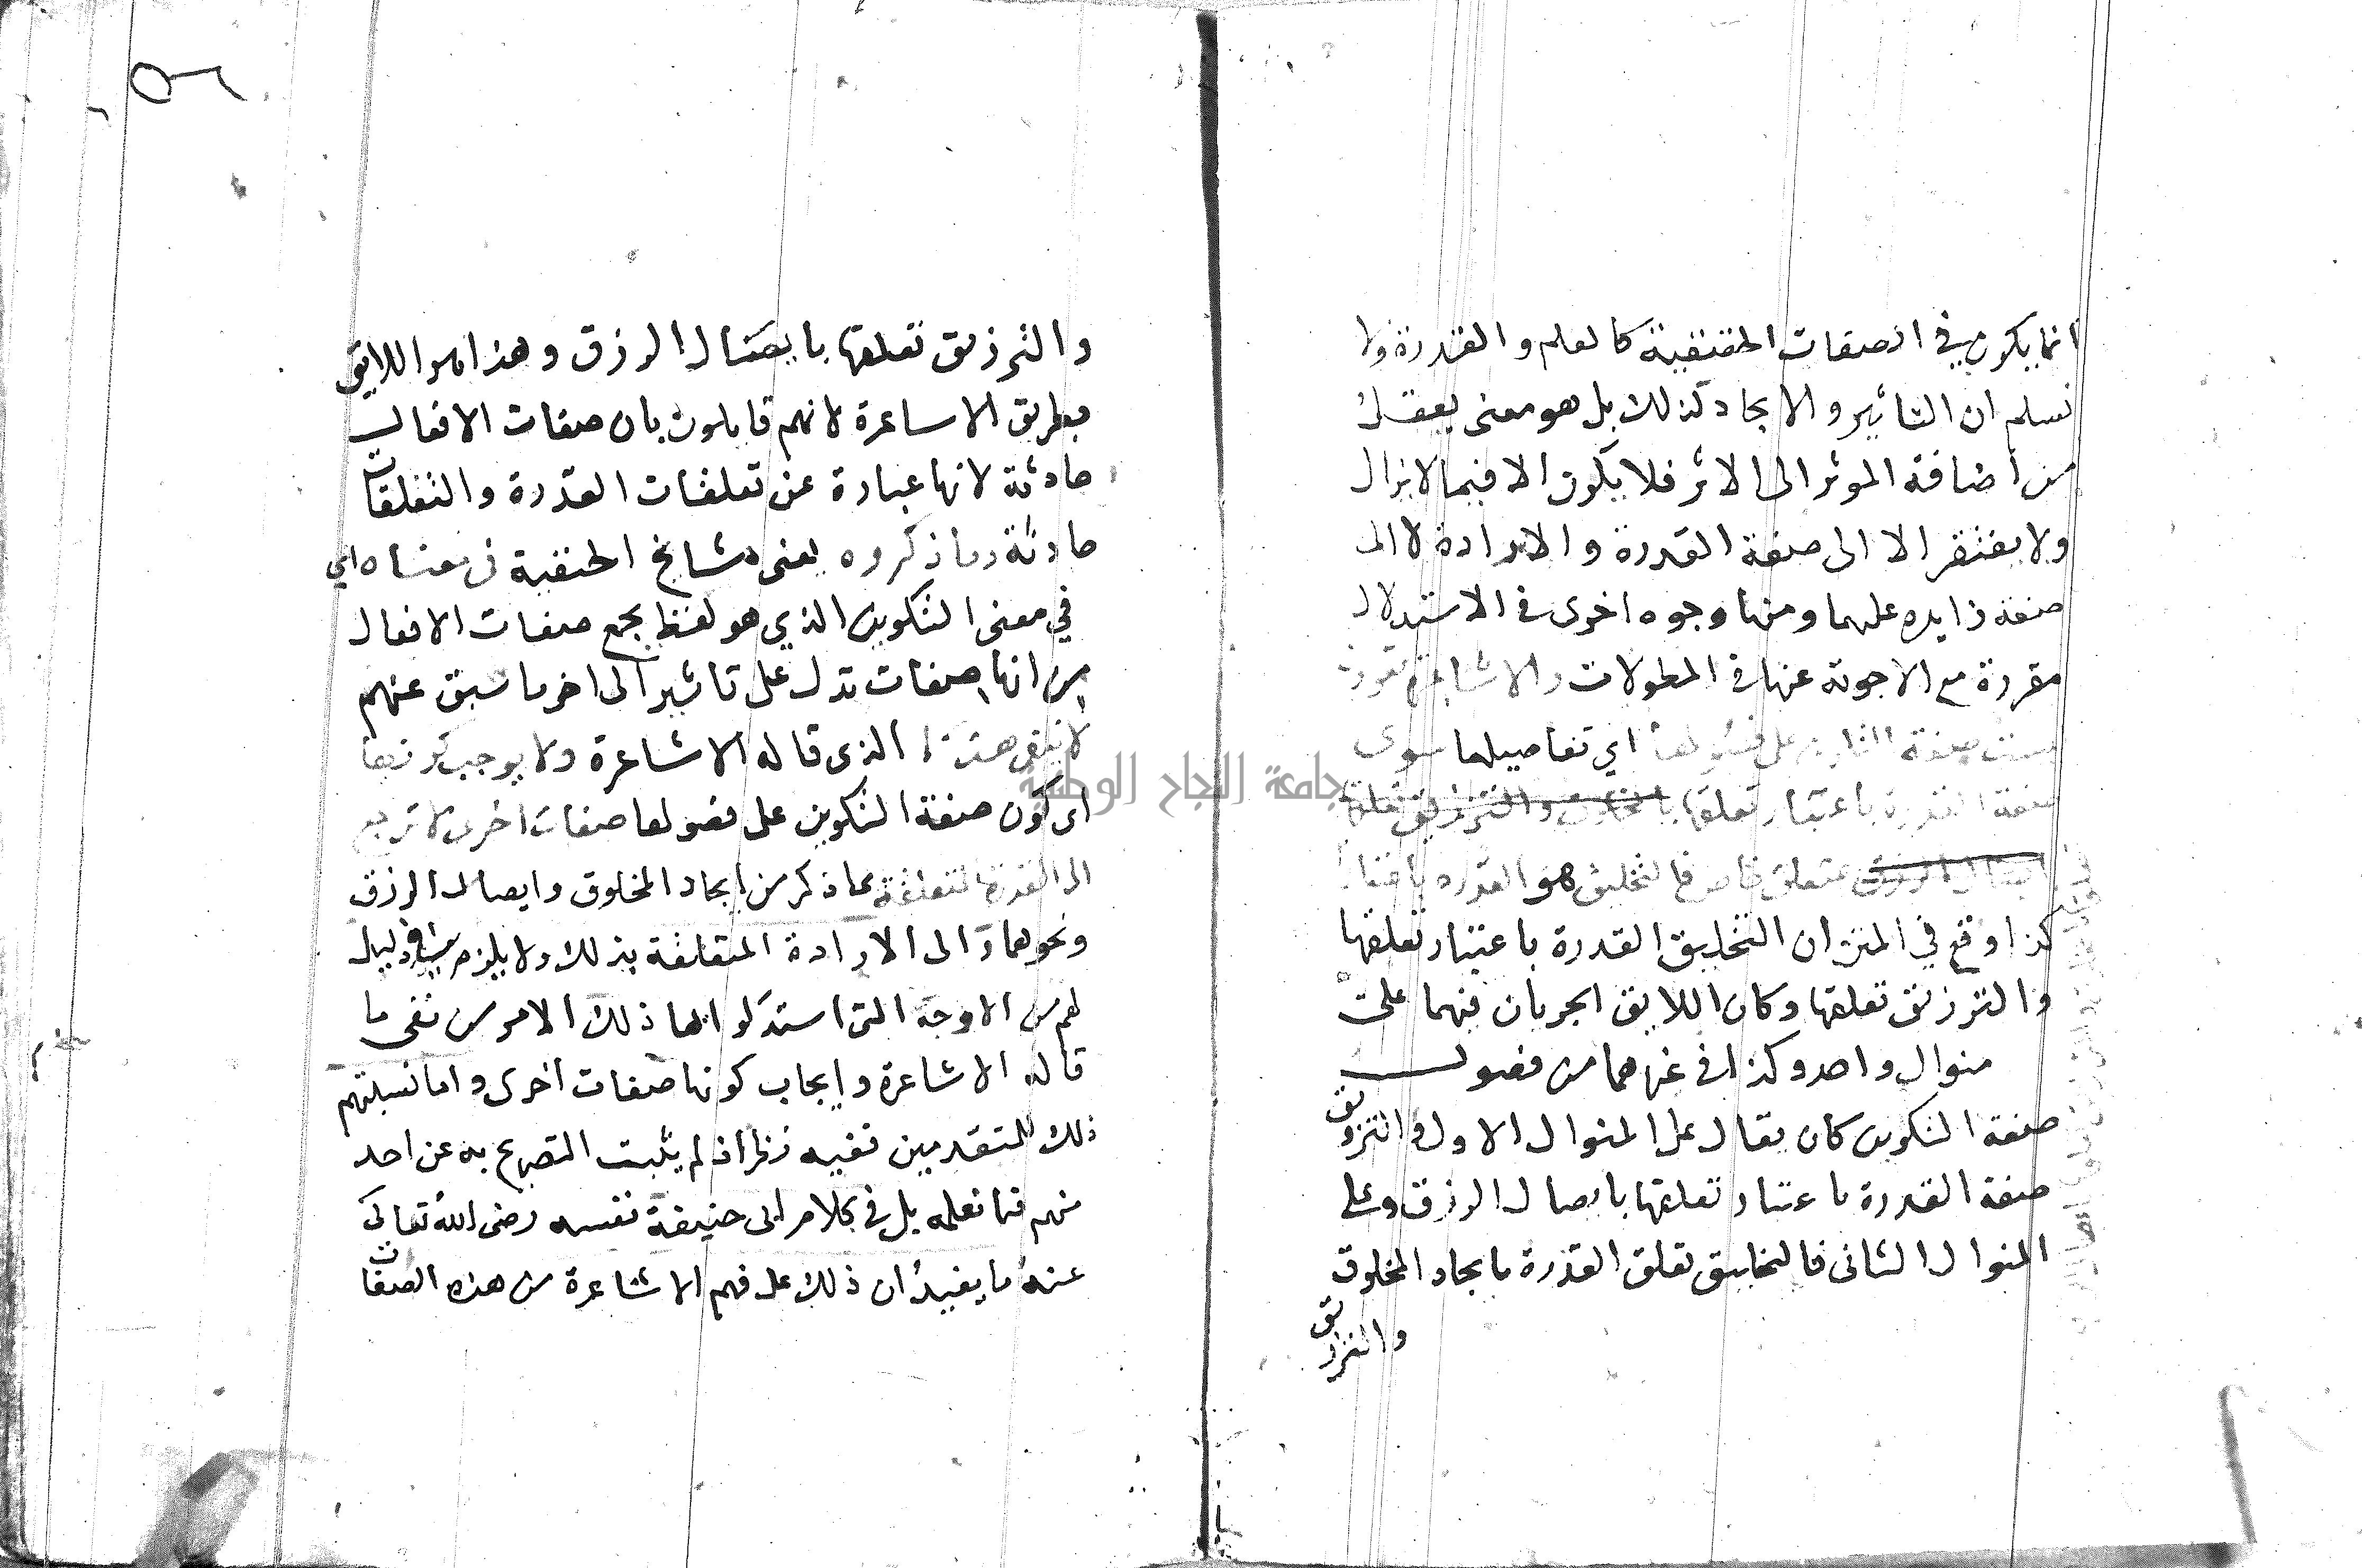 انما يكون في الصفات الحقيقية كالعلم والقدرة ولا
نسلم ان التاثير والايجاد كذلك بل هو معنى يعقل
من اضافة الموثر الى الاثر فلا يكون الا فيما لا يزال
ولا يفتقر الا الى صفة القدرة والارادة لا الى
صفة زايده عليهما ومنها وجوه اخرى في الاستدلال
مقررة مع الاجوبة عنها في المطولات والاشاعرة يقولون
ليست صفة التكوين على فصولها اي تفاصيلها سوى
صفة القدرة باعتبار تعلقها بالمخلوق والترزيق تعلقها
بايصال الرزق بمتعلق خاص فالتخليق هو القدرة باعتبار
كذا وقع في المتن ان التخليق القدرة باعتبار تعلقها
والترزيق تعلقها وكان اللايق الجريان فيهما على
منوال واحد وكذا في غيرهما من فصول
صفة التكوين كان يقال على المنوال الاول في الترزيق
صفة القدرة باعتبار تعلقها بايصال الرزق وعلى
المنوال الثانى فالتخليق تعلق القدرة بايجاد المخلوق
والترزيق
والترزيق تعلقها بايصال الرزق وهذا هو اللايق
بطريق الاساعرة لانهم قايلون بان صفات الافعال
حادثة لانها عبارة عن تعلقات القدرة والتعلقات
حادثة وما ذكروه يعنى مشايخ الحنفية في معناه اي
في معنى التكوين الذي هو لفظ يجمع صفات الافعال
من انها صفات تدل على تاثير الى اخر ما سبق عنهم
لا ينفي هذا الذى قاله الاشاعرة ولا يوجب كونها
اى كون صفة التكوين على فصولها صفات اخرى لا ترجع
الى القدرة المتعلقة بما ذكر من ايجاد المخلوق وايصال الرزق
ونحوهما والى الارادة المتعلقة بذلك ولا يلزم في دليل
لهم من الاوجه التى استدلوا بها ذلك الامر من نفى ما
قاله الاشاعرة وايجاب كونها صفات اخرى واما نسبتهم
ذلك للمتقدمين ففيه نظر اذ لم يثبت التصريح به عن احد
منهم فيما نعلمه بل في كلام ابى حنيفة نفسه رضى الله تعالى
عنه ما يفيد ان ذلك على فهم الاشاعرة من هذه الصفات
جامعة النجاح الوطنية